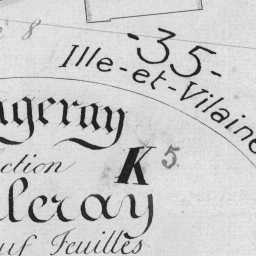 -35-
Ille-et-Vilaine
8
ngeray
ction
K 5.
leray
uf Feuilles